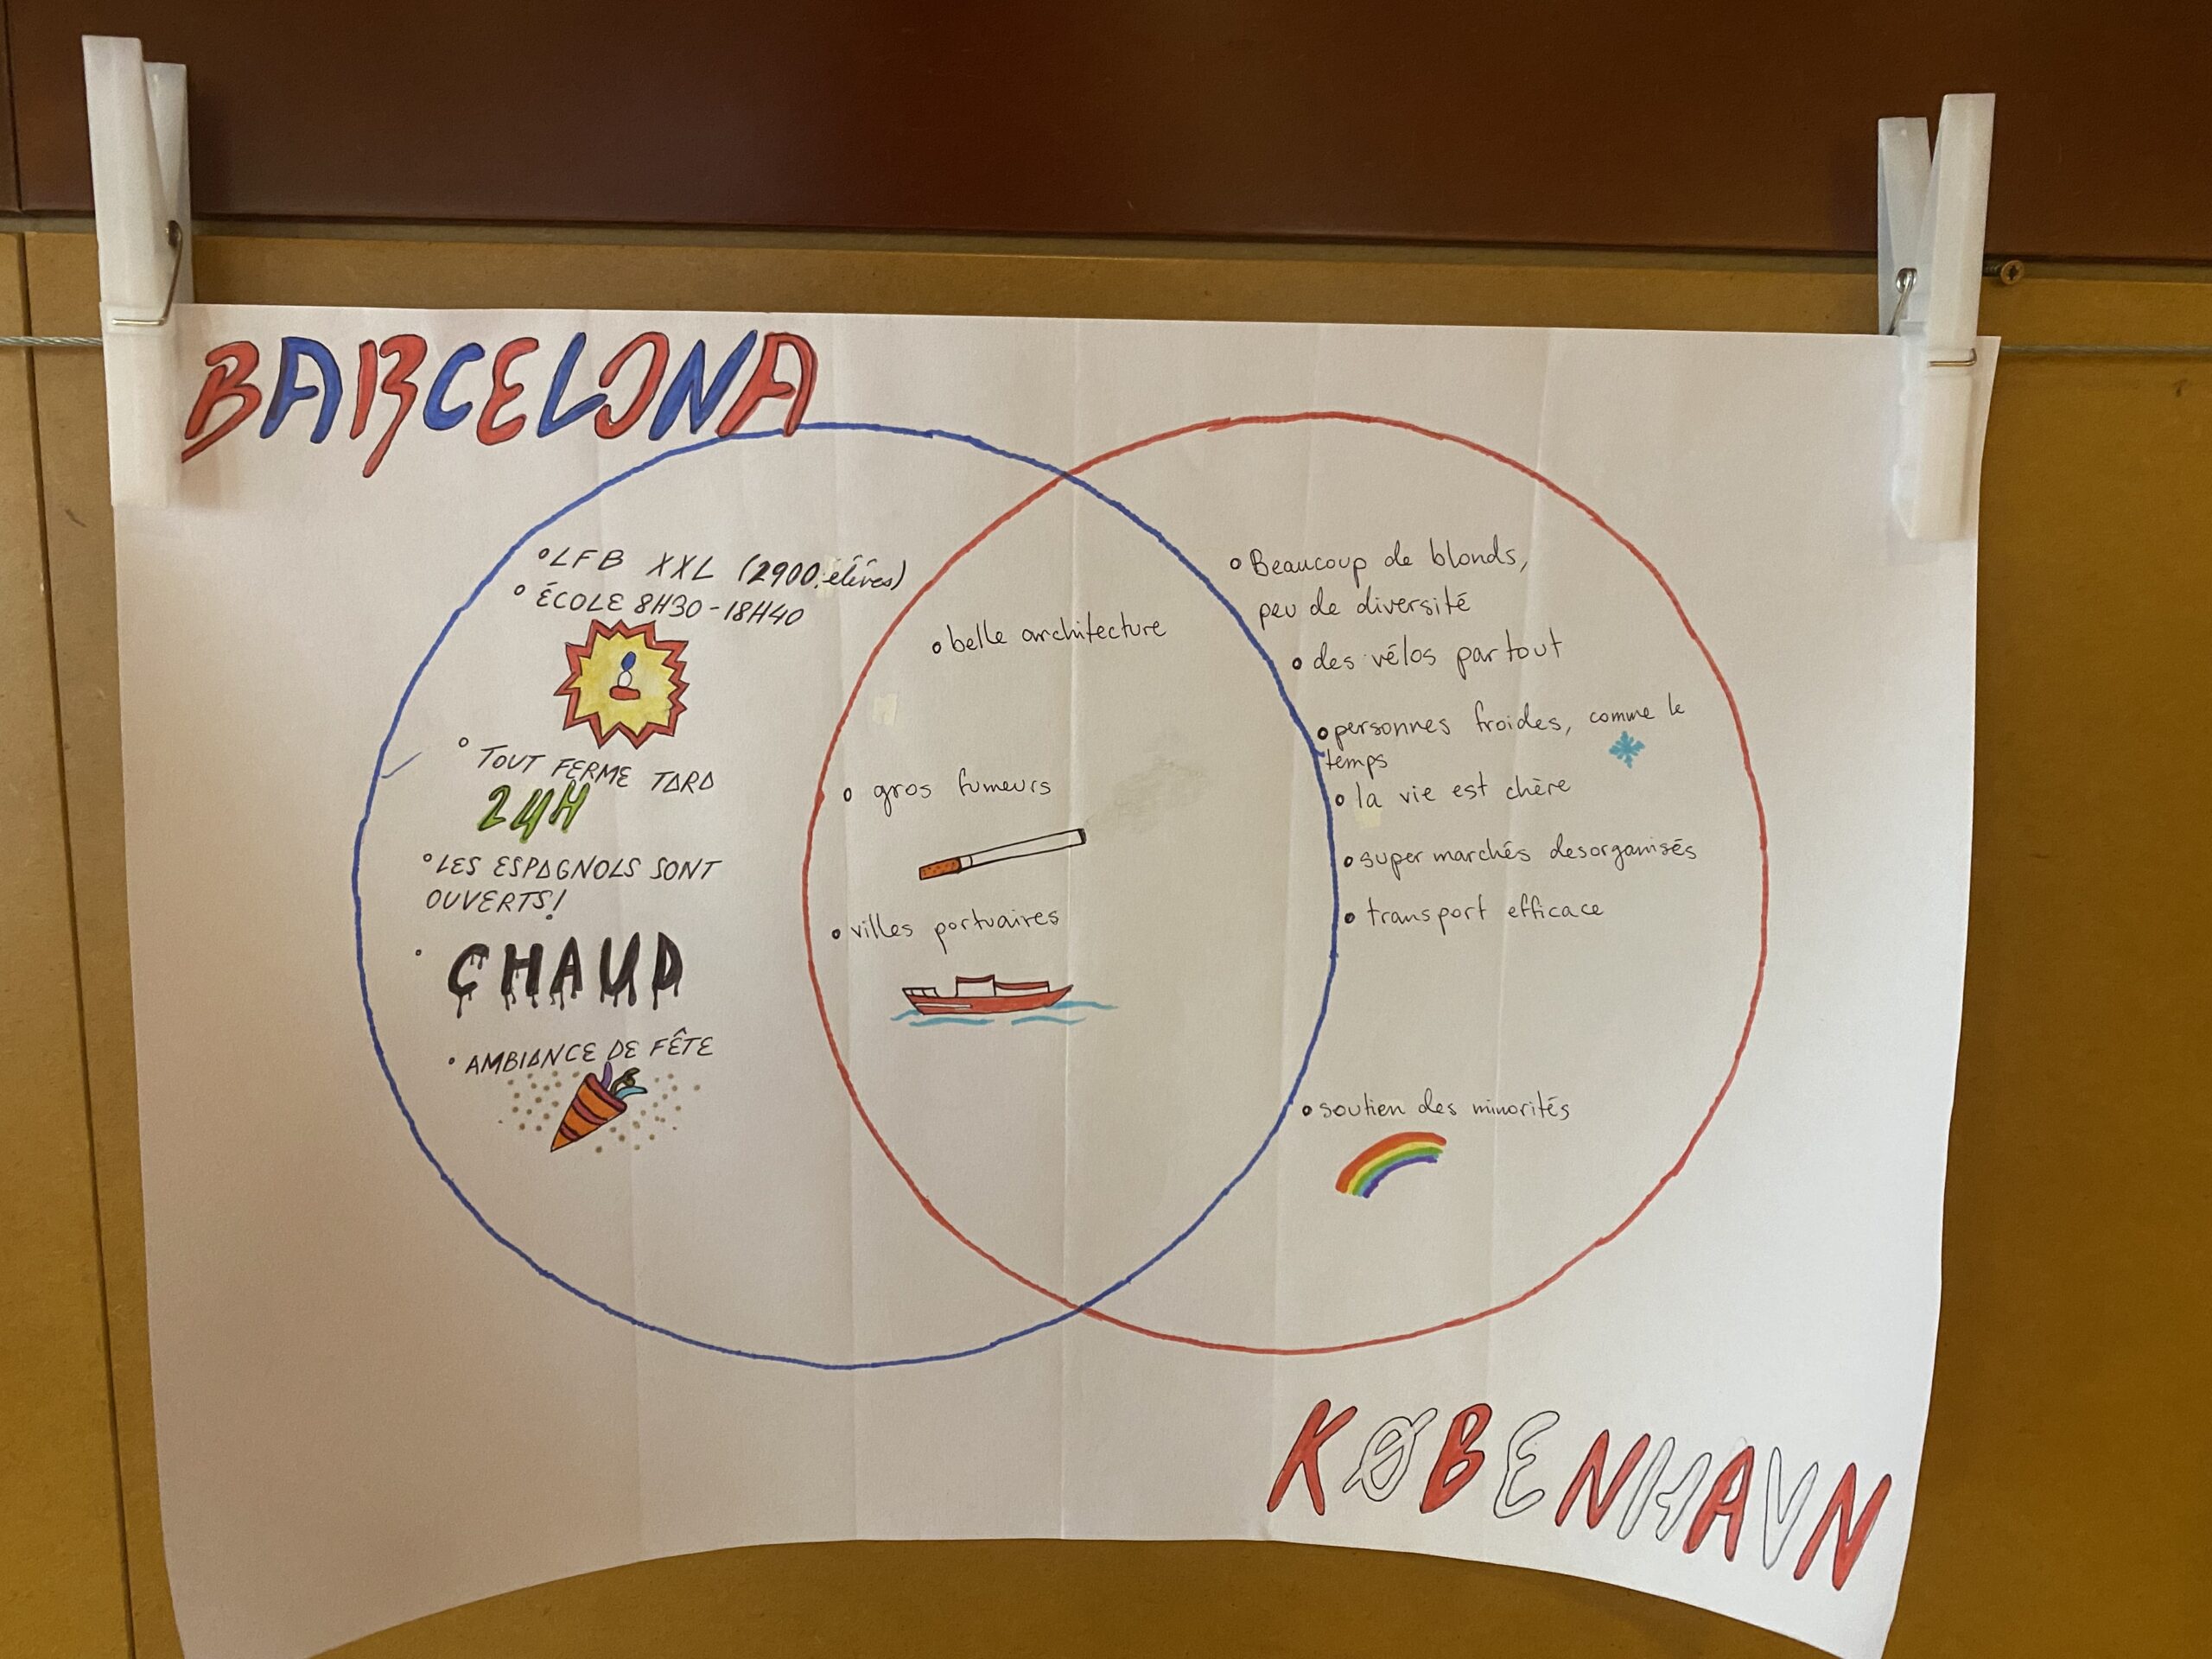 BARCELONA
° LFB XXL (2900 élèves)
° ÉCOLE 8H30-18H40
° TOUT FERME TARD
24H
° LES ESPAGNOLS SONT
OUVERTS!
° CHAUD
° AMBIANCE DE FÊTE
° belle architecture
° gros fumeurs
° villes portuaires
° Beaucoup de blonds,
peu de diversité
° des vélos partout
° personnes froides, comme le
temps
° la vie est chère
° super marchés desorganisés
° transport efficace
° soutien des minorités
KØBENHAVN